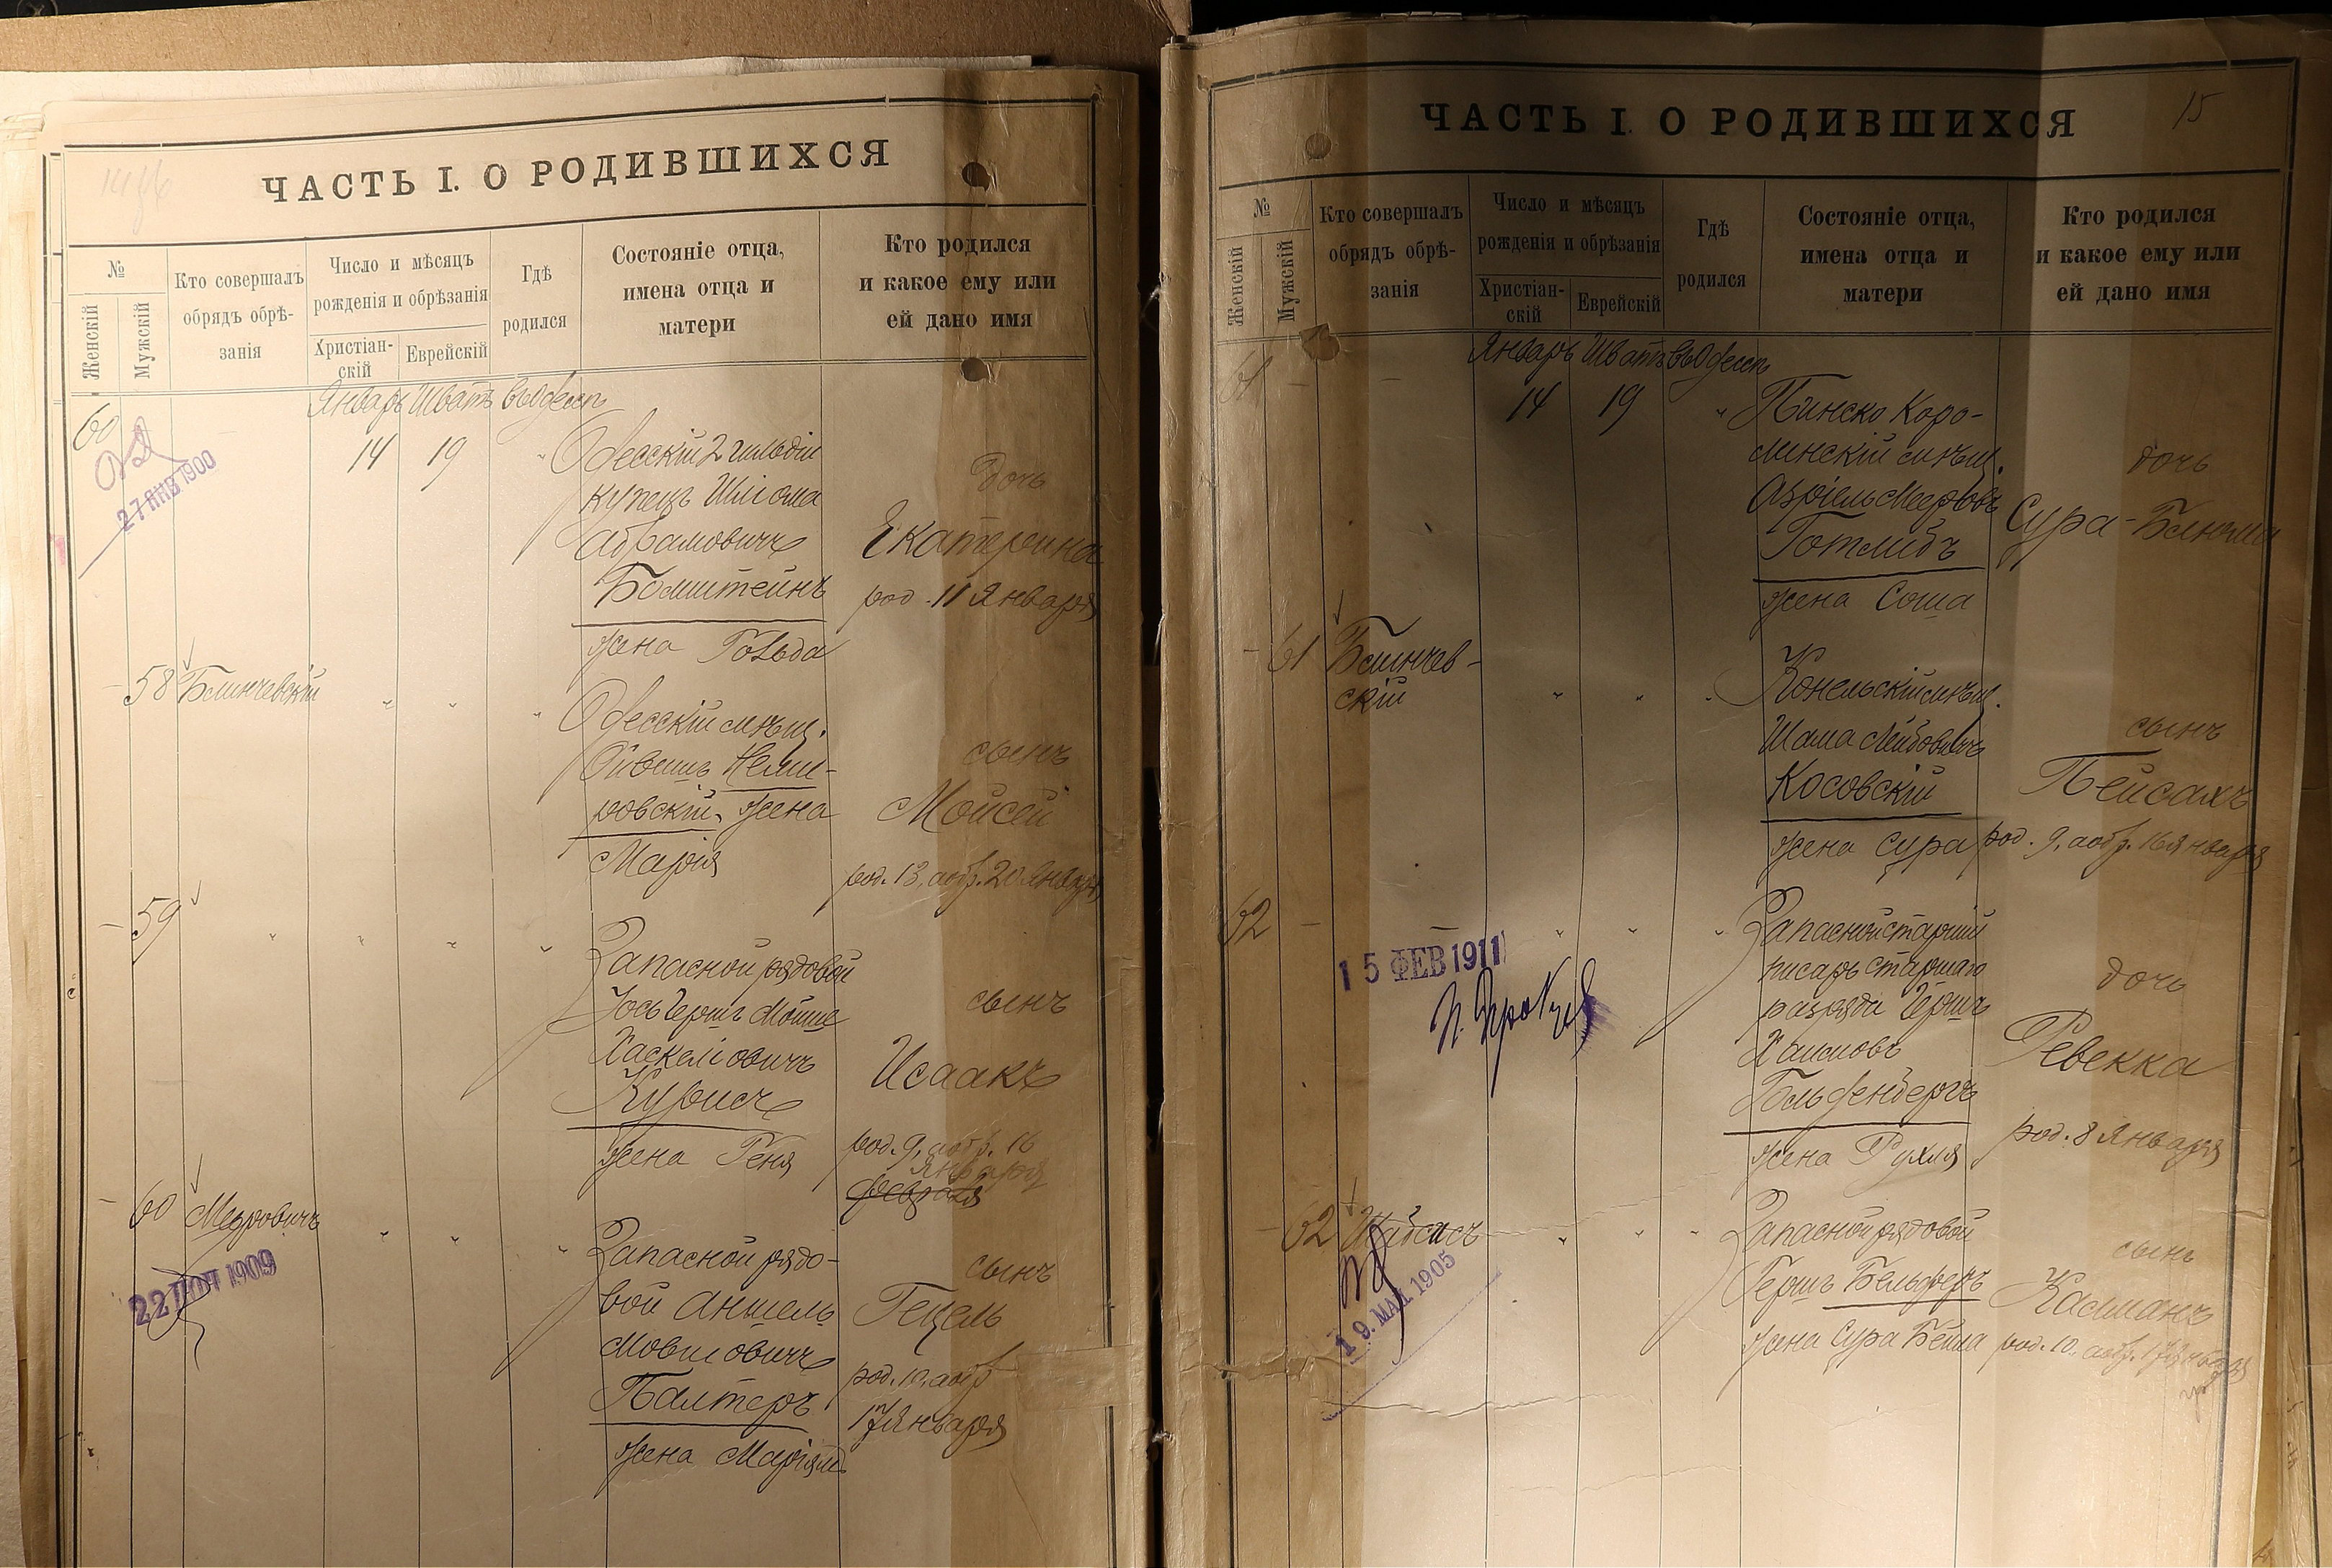 ЧАСТЬ I. О РОДИВШИХСЯ
№
Женскій
Мужскій
Кто совершалъ
обрядъ обрѣ-
занія
Число и мѣсяцъ
рожденія и обрѣзанія
Христіан-
скій
Еврейскій
Гдѣ
родился
Состояніе отца,
имена отца и
матери
Кто родился
и какое ему или
ей дано имя
Январь Шватъ въ Одессѣ
60
27 ЯНВ 1900
14 19 " Одесскій 2 гильдіи
купецъ Шліома
Абрамовичъ
Бомштейнъ
жена Гольда
дочь
Екатерина
род. 11 Января
- 58 Блинчевскій " " " Одесскій мѣщ.
Ойвешъ Неми-
ровскій, жена
Марія
сынъ
Мойсей
род. 13, аобр. 20 Января
- 59 " " " " Запасной рядовой
Іось Гершъ Мойше
Хаскеліовичъ
Курисъ
жена Геня
сынъ
Исаакъ
род. 9, аобр. 16
Января
февраля
- 60 Меровичъ " " " Запасной рядо-
вой Аншель
Мовшовичъ
Палтеръ
жена Маріямъ
22 1909
сынъ
Гецель
род. 10, аобр
17 Января
15
ЧАСТЬ I. О РОДИВШИХСЯ
№
Женскій
Мужскій
Кто совершалъ
обрядъ обрѣ-
занія
Число и мѣсяцъ
рожденія и обрѣзанія
Христіан-
скій
Еврейскій
Гдѣ
родился
Состояніе отца,
имена отца и
матери
Кто родился
и какое ему или
ей дано имя
Январь Шватъ въ Одессѣ
61 - - 14 19 " Пинско Коро-
линскій мѣщ.
Азріель Мееровъ
Готлибъ
жена Соша
дочь
Сура-Блюма
- 61 Блинчев-
скій
" " " Конельскій мѣщ.
Шама Лейбовичъ
Косовскій
жена Сура
сынъ
Пейсахъ
род. 9, аобр. 16 Января
62 - - " " " Запасной старшій
писарь старшаго
разряда Гершъ
Хаимовъ
Гольденбергъ
жена Рухля
15 ФЕВ 1911
дочь
Ревекка
род. 8 Января
- 62 Шабсисъ " " " Запасной рядовой
Гершъ Бельферъ
жена Сура Бейла
19. МАЯ. 1905
сынъ
Калманъ
род. 10, аобр. 17 Января